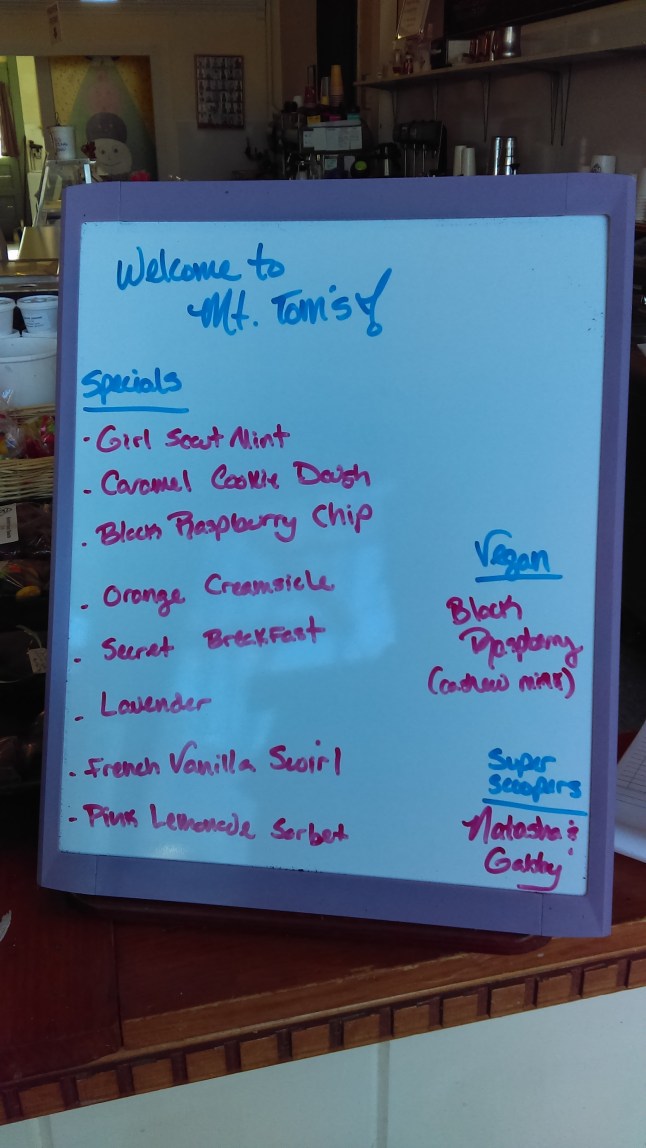 Welcome to
Mt. Tom's
Specials
• Girl Scout Mint
• Caramel Cookie Dough
• Black Raspberry Chip
• Orange Creamsicle
• Secret Breakfast
• Lavender
• French Vanilla Swirl
• Pink Lemonade Sorbet
Vegan
Black
Raspberry
(cashew milk)
Super
Scoopers
Natasha &